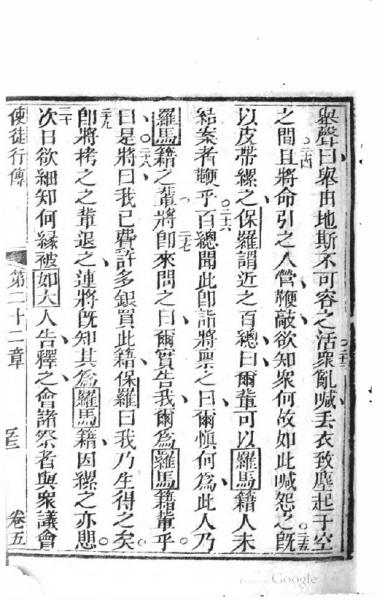 舉聲曰舉由地斯不可容之活衆亂喊丟衣致塵起于空
二三
二四
之間且將命引之人管鞭敲欲知衆何故如此喊怨之旣
二五
以皮帶縲之保羅謂近之百總曰爾輩可以羅馬籍人未
結案者鞭乎百總聞此卽詣將稟之曰爾愼何爲此人乃
二六
羅馬籍之輩將卽來問之曰爾實告我爾爲羅馬籍輩乎
二七
曰是將曰我已費許多銀買此籍保羅曰我乃生得之矣
二八
卽將拷之之輩退之連將旣知其爲羅馬籍因縲之亦悲
二九
次日欲細知何緣被如大人告釋之會諸祭者與衆議會
三十
使徒行傳
第二十二章
卷五
Google